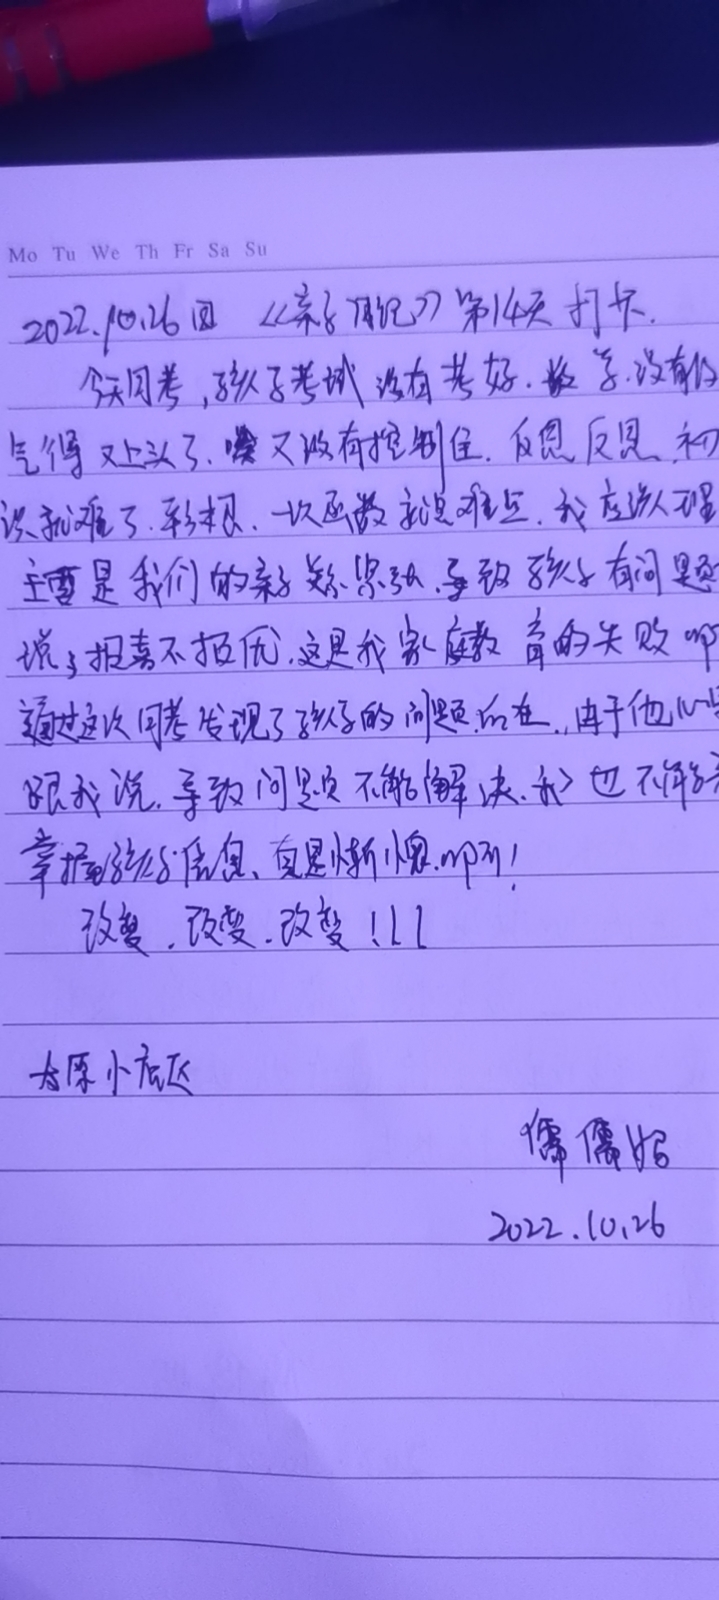 Mo Tu We Th Fr Sa Su
2022.10.26 四 《亲子日记》第14天打卡.
今天月考，孩子考试没有考好.数学.没有
气得又上头了.又没有控制住.反思反思.初
识就难了.平方根.一次函数就是难点.我应该理
主要是我们的亲子关系紧张.导致孩子有问题
说，报喜不报忧.这是我家庭教育的失败啊
通过这次月考发现了孩子的问题所在.由于他
跟我说.导致问题不能解决.我也不能
掌握孩子信息、真是惭愧啊！
改变.改变.改变！！！
太原小店区
儒儒妈
2022.10.26